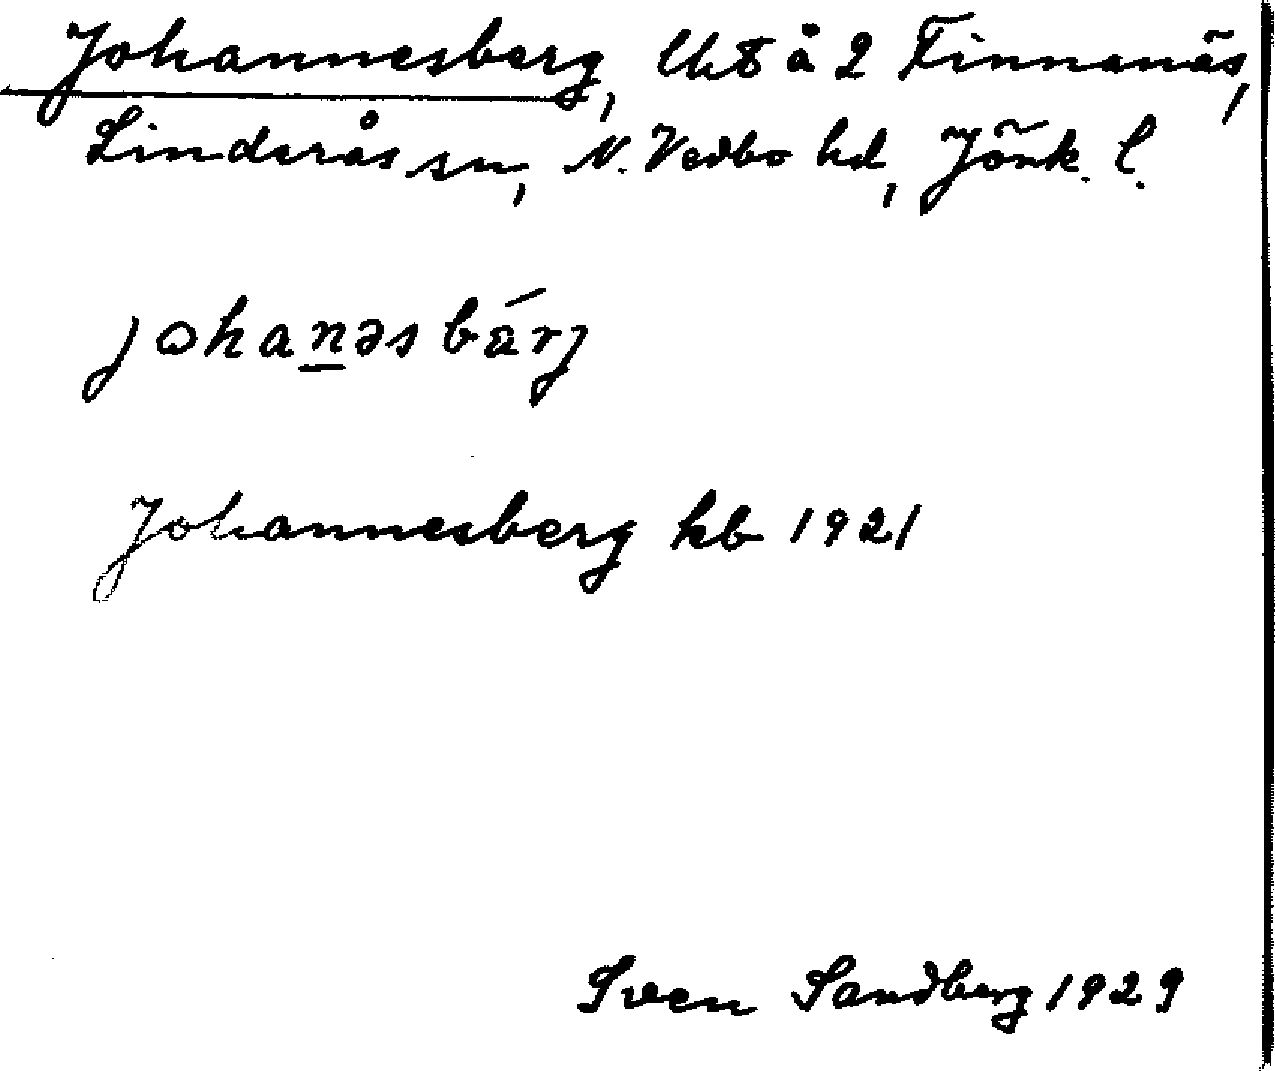 Johannesberg, lht å 2 Finnanäs,
Linderås sn, N. Vedbo hd, Jönk. l.
johanəsbärj
Johannesberg kb 1921
Sven Sandberg 1929